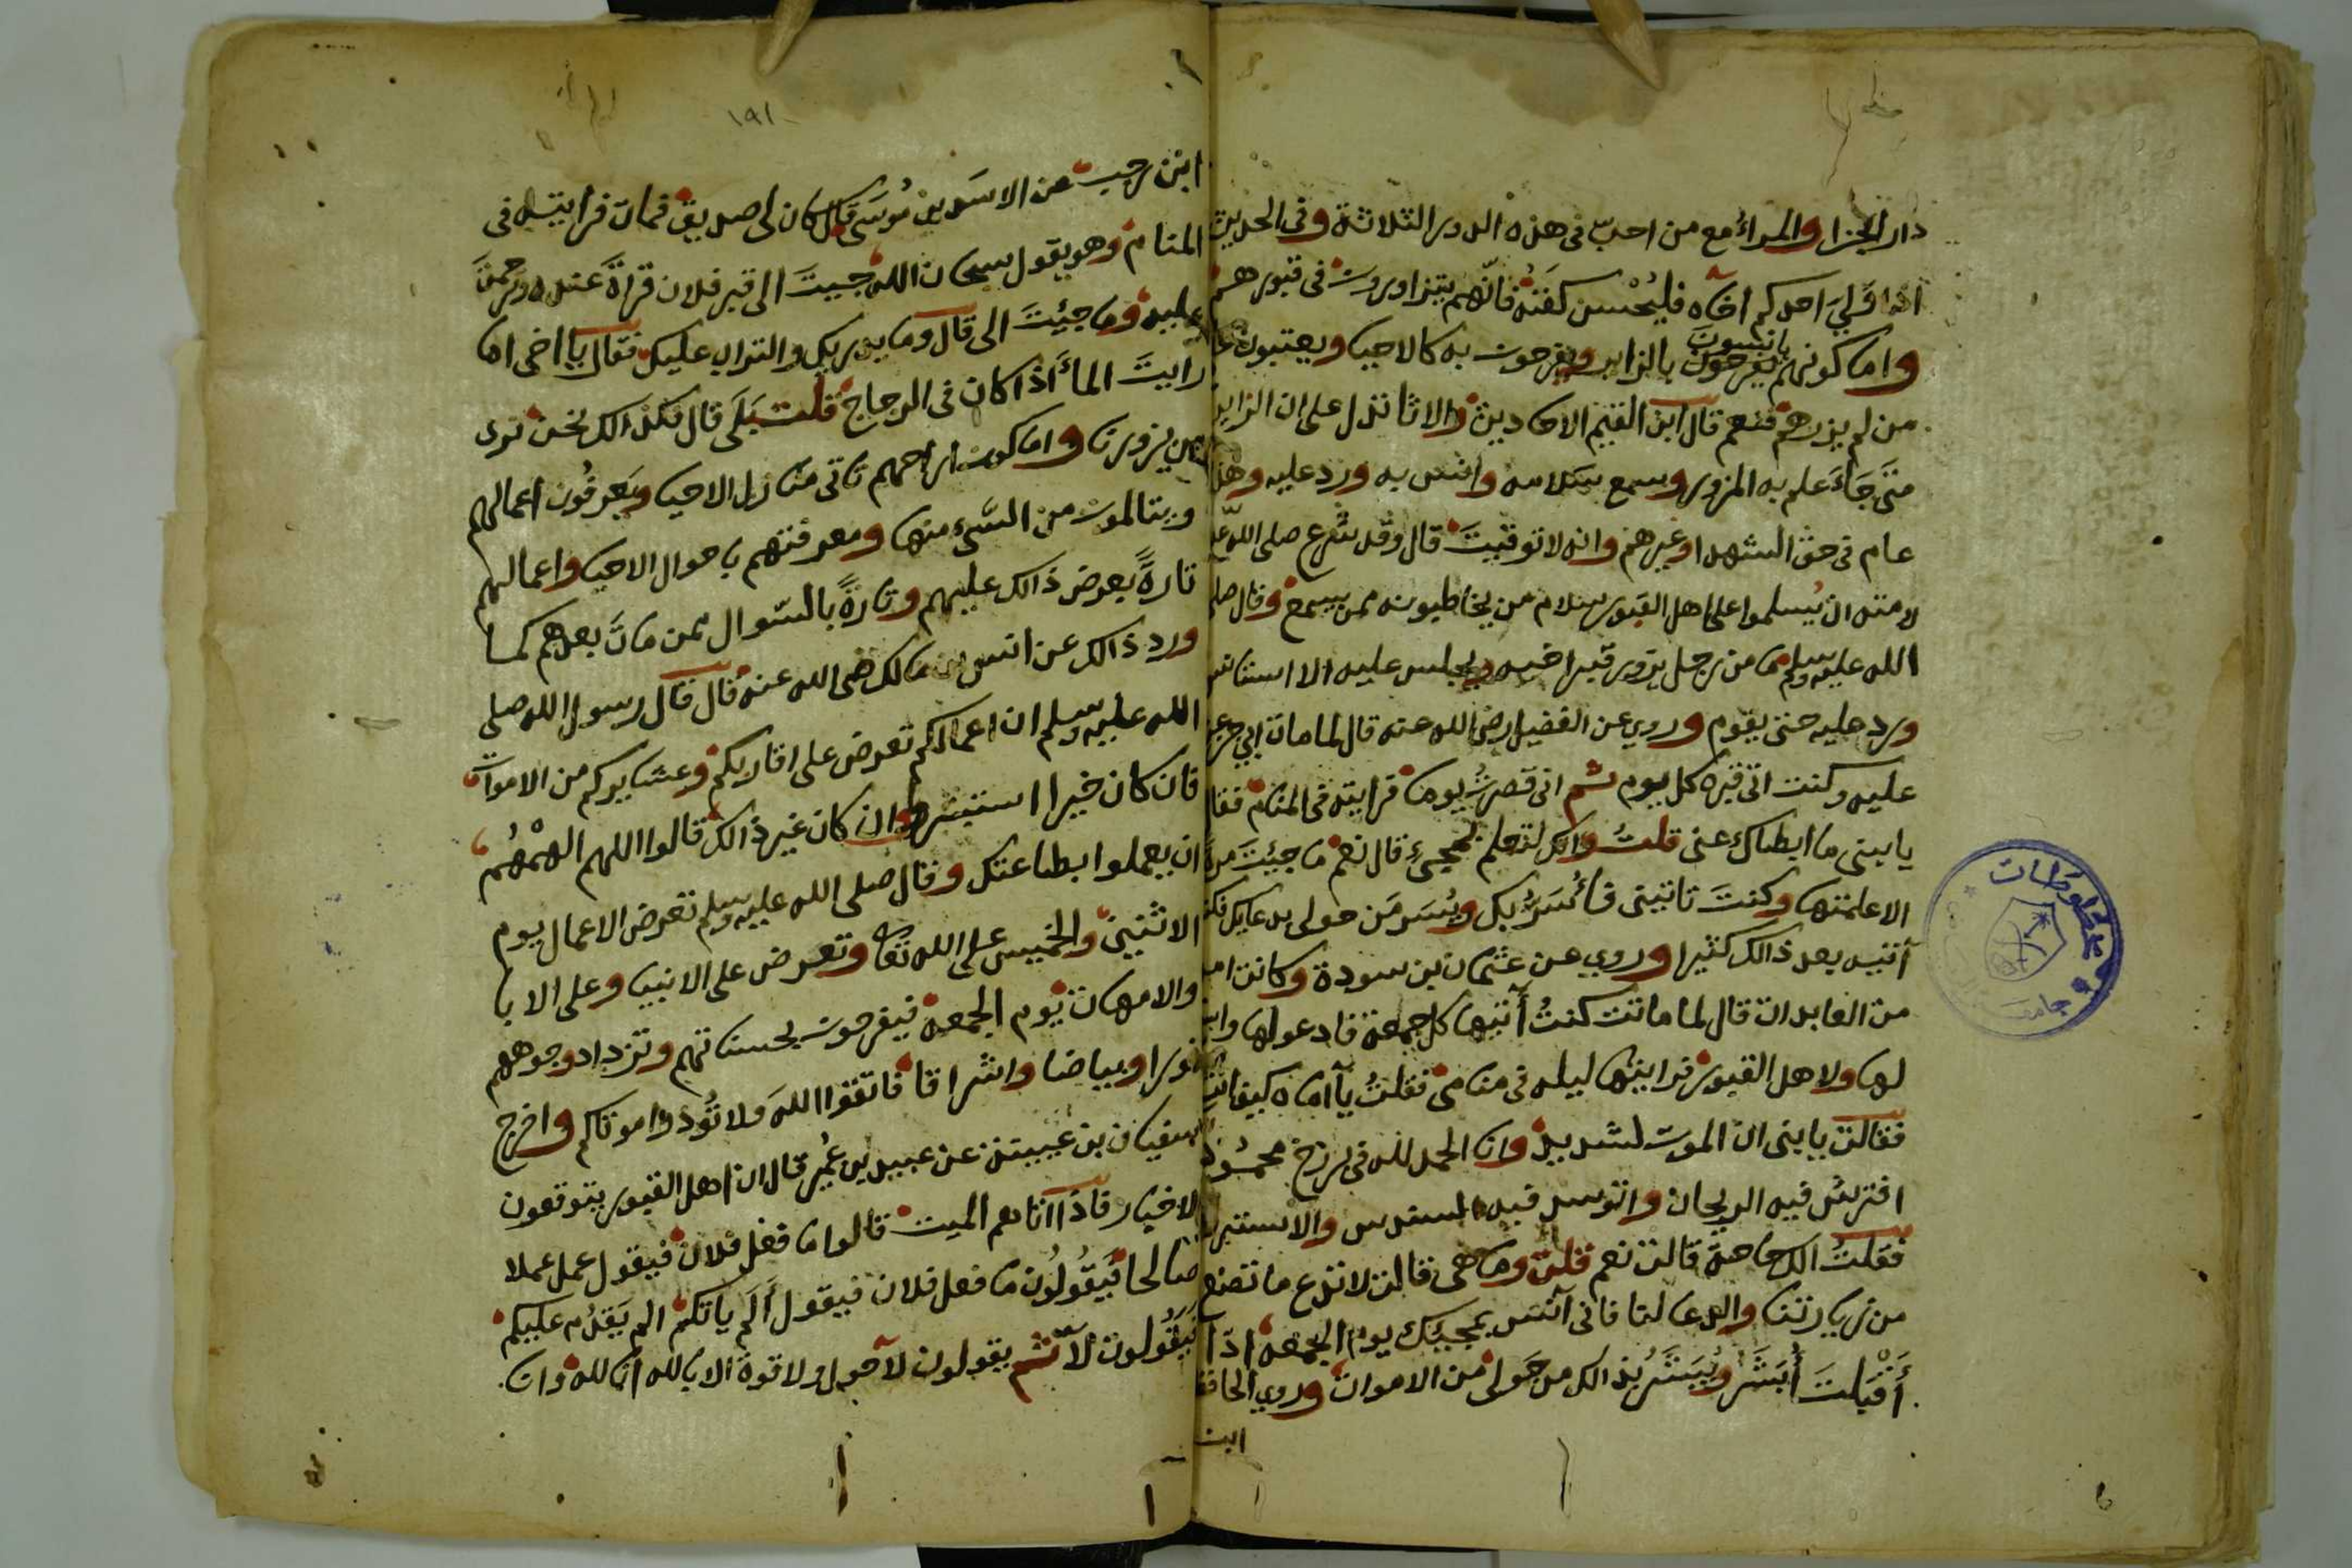 دار الجزا والمراء مع من احبّ في هذه الدور الثلاثة وفي الحديث
اذا وَلِيَ احدكم اخاه فليُحْسن كفنَهُ فانّهم يتزاورون في قبورهم
واما كونهم يانسون يفرحون بالزاير ويفرحون به كالاحيا ويعتبون على
من لم يزرهم فنعم قال ابن القيم الاحاديث والاثا تدل على ان الزاير
متى جَاءَ علم به المزور وسمع سَلامه وانس به ورد عليه وهذا
عام في حق الشهدا وغيرهم وانه لا توقيتَ قال وقد شرع صلى الله عليه
لامته ان يُسلموا على اهل القبور سلام من يخاطبونه ممن يسمع وقال صلى
الله عليه وسلم ما من رجل يزور قبر اخيه ويجلس عليه الا استانس
ورد عليه حتى يقوم وروي عن الفضيل رضي الله عنه قال لما مات ابي جزعت
عليه وكنت اتي قبره كل يوم ثم اني قصرتُ يوما فرايته في المنام فقال
يا بني ما ابطاك عني قلتُ وانك لتعلم بمجيءِ قال نعم ما جيئتَ مرةً
الا علمتها وكنتَ تاتيني فأُسَرّ بك ويُسَر مَن حولي بدعايك فكنت
آتيه بعد ذالك كثيرا وروي عن عثمان بن سودة وكانت امه
من العابدات قال لما ماتت كنتُ أتيها كل جمعة فادعو لها واستغفر
لها ولاهل القبور فرايتها ليله في منامي فقلتُ يا اماه كيف انتِ
فقالت يا بني انّ الموت لشديد وانا الحمد لله في برزخ محمود
افترش فيه الريحان واتوسد فيه السندس والاستبرق
فقلتُ الك حاجة قالت نعم قلت وما هي قالت لا تدع ما تصنع
من زيارتنا والدعا لنا فاني آنَس بمجيئك يوم الجمعة اذا
أقبلتَ أُبَشَّر ويُبَشَّرُ بذالك من حَولي من الاموات وروي الحافظ
ابن
١٩١
ابن رجب عن الاسَد بن مُوسَى قال كان لي صديق فمات فرايته في
المنام وهو يقول سبحان الله جيتَ الى قبر فلان قراةً عنده وترحمتَ
عليه وما جيئتَ الي قال وما يدريك والتراب عليك فقال يا اخي اما
رايتَ الماءَ اذا كان في الزجاج قلت بَلَى قال فكذالك نحن نرى
من يزورنا واما كون ارواحهم تاتي منازل الاحيا ويَعرفُون اعمالهم
ويتالمون من السّيء منها ومعرفتهم باحوال الاحيا واعمالهم
تارةً بعرض ذالك عليهم وتارةً بالسّوال ممن ماتَ بعدهم كما
ورد ذالك عن انس بن مالك رضي الله عنه قال قال رسول الله صلى
الله عليه وسلم ان اعمالكم تعرض على اقاربكم وعشايركم من الاموات
فان كان خيرا استبشروا وان كان غير ذالك قالوا اللهم الهمْهُم
ان يعملوا بطاعتك وقال صلى الله عليه وسلم تعرض الاعمال يوم
الاثنين والخميس على الله تعا وتعرض على الانبيا وعلى الابا
والامهات يوم الجمعة فيفرحون بحسناتهم وتزداد وجوههم
نورا وبياضا واشراقا فاتقوا اللهَ ولا تُوذوا موتاكم واخرج
سفيان بن عيينة عن عبيد بن عُمير قال ان اهل القبور يتوقعون
الاخبار فاذا اتاهم الميت قالوا ما فعل فلان فيقول عمل عملا
صالحا فيَقُولُون ما فعل فلان فيقول أَلَم ياتكم الم يَقدُم عليكم
فيَقُولون لا ثم يقولون لا حول ولا قوة الا بالله انا لله وان